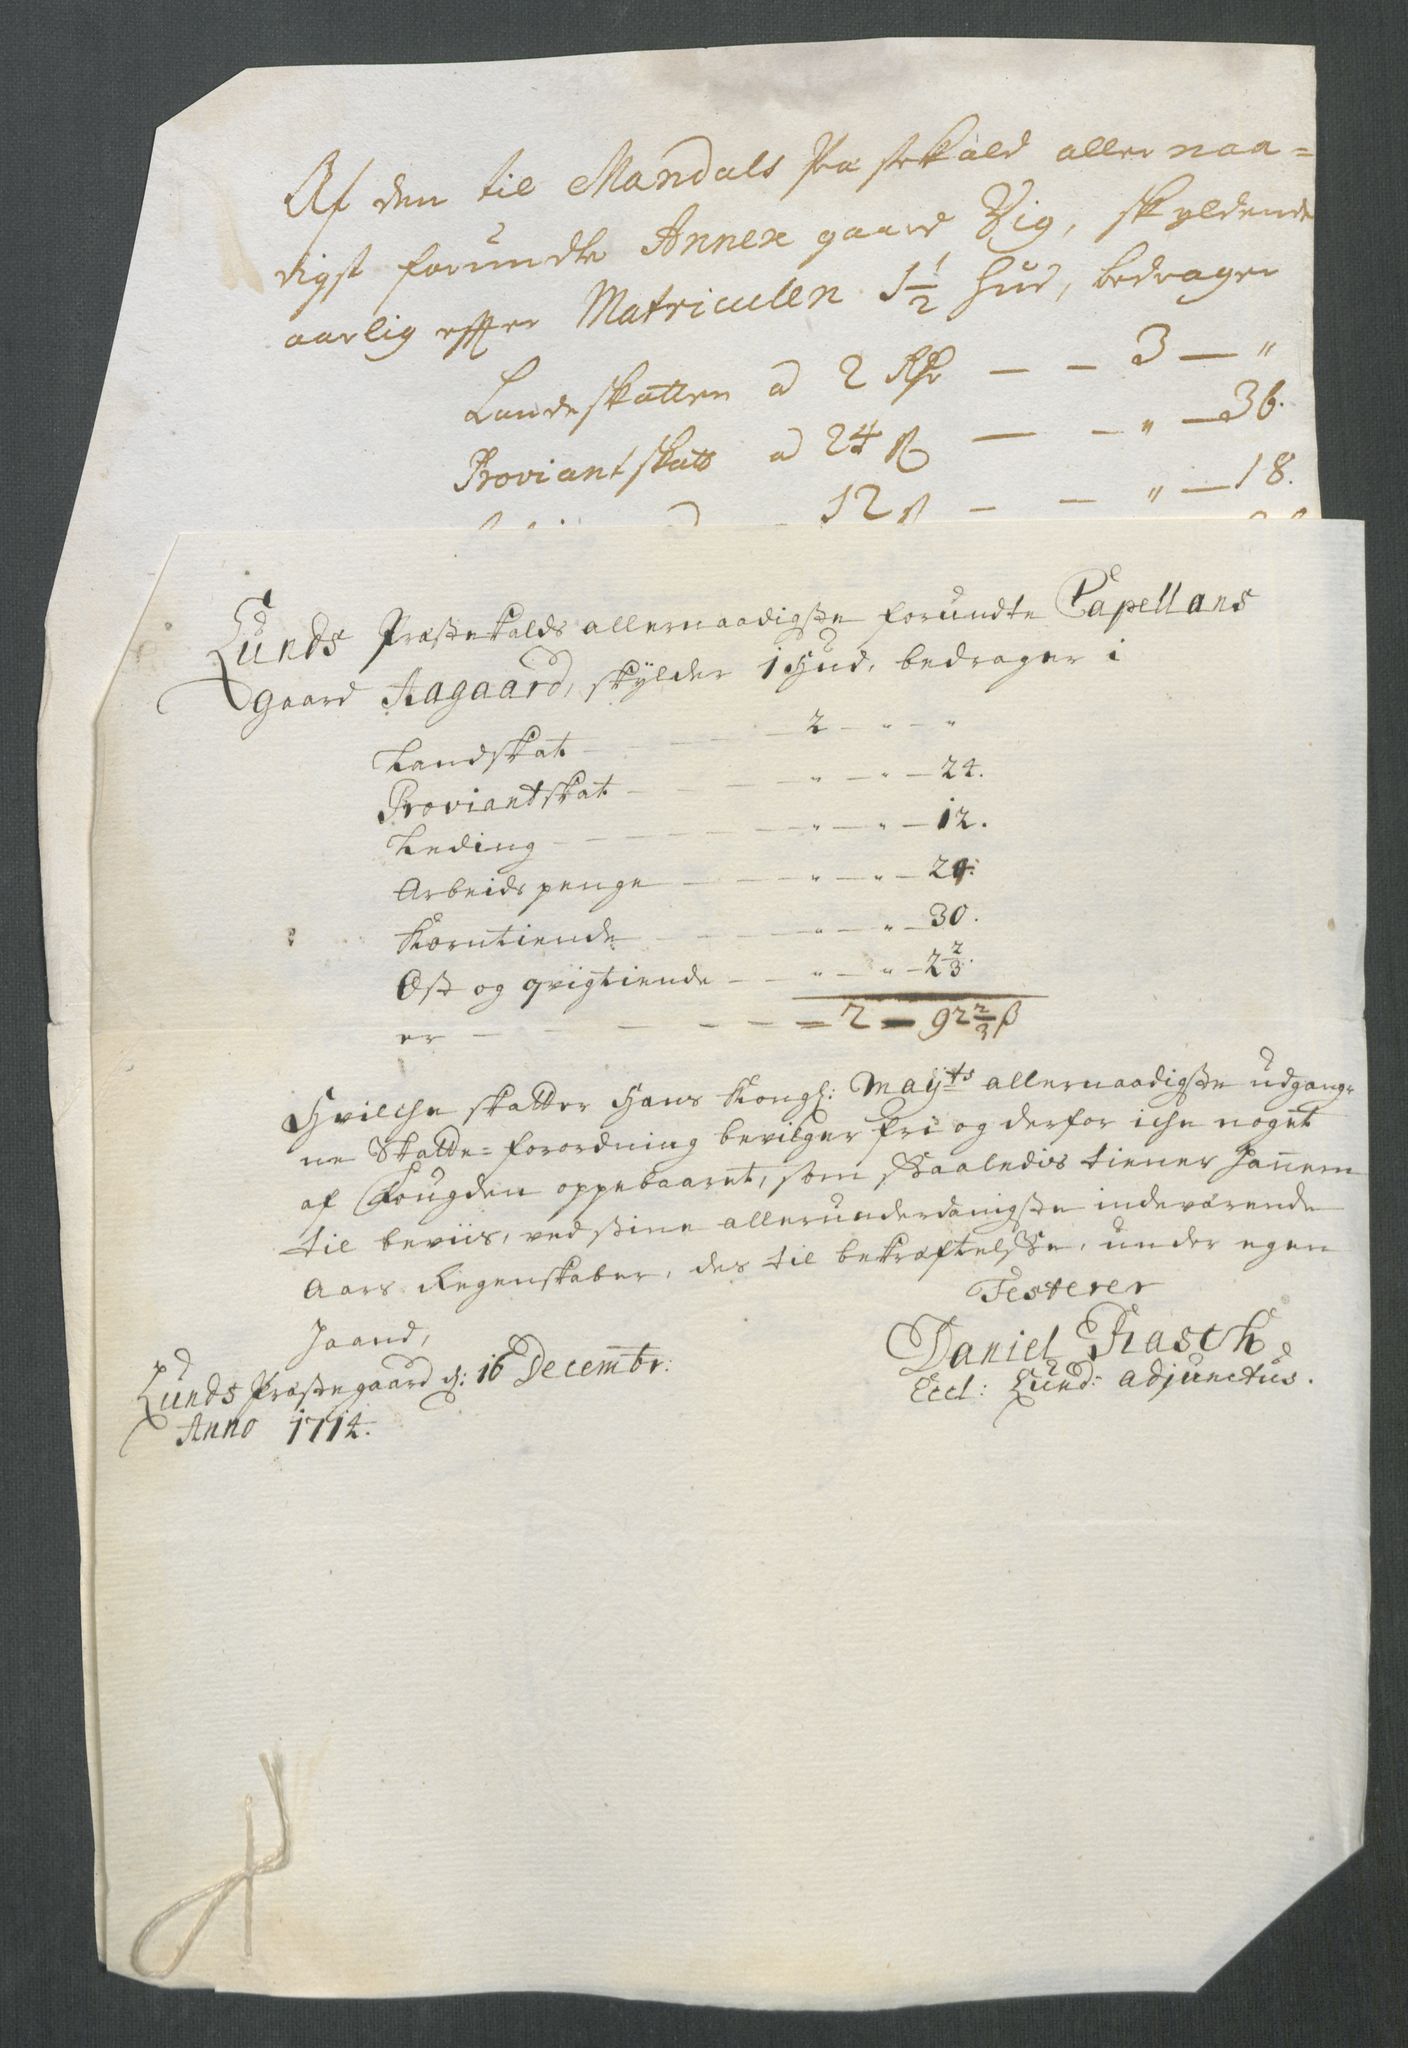 Af den til Mandals Præstekald allernaa=
digst forundte Annex gaard Vig, skyldende
aarlig effter Matriculen 1½ hud, bedrager
Landskatten a 2 Rdr — — 3 — "
Proviantskatt a 24 ß — — " — 36.
12 ß — — " — 18.
Lunds Præstekalds allernaadigste forundte Capellans
gaard Aagaard, skylder 1 Hud, bedrager i
Landskat — — — 2 — " — "
Proviantskat — — — " — " — 24.
Leding — — — " — " — 12.
Arbeids penge — — — " — " — 24.
Korntiende — — — " — " — 30.
Ost og qvigtiende — — " — " — 2 2/3.
er — — — — — 2 — 92 2/3 ß
Hvilche skatter Hans Kongl: Mayts allernaadigste udgang=
ne Skatte=forordning bevilger fri og derfor iche noget
af Fougden oppebaaret, som saaledis tiener hannem
til beviis, ved sine allerunderdanigste indeværende
Aars Regenskaber, des til bekræftelse, under egen
Haand,
Testerer
Lunds Præstegaard d: 16 Decembr:
Anno 1714.
Daniel Rasch
Eccl: Lund: adjunctus.